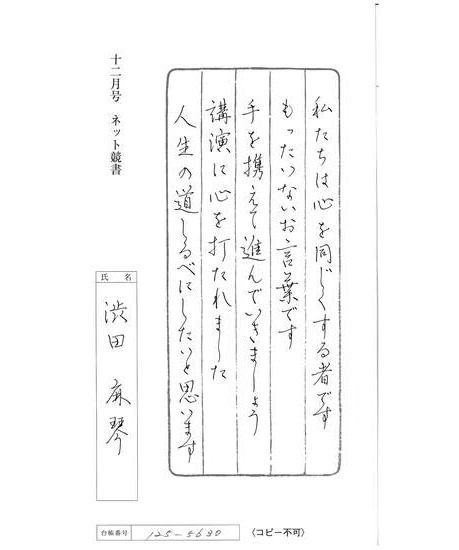 私たちは心を同じくする者です
もったいないお言葉です
手を携えて進んでいきましょう
講演に心を打たれました
人生の道しるべにしたいと思います
十二月号 ネット競書
氏名
渋田 麻琴
台帳番号
125-5680
〈コピー不可〉